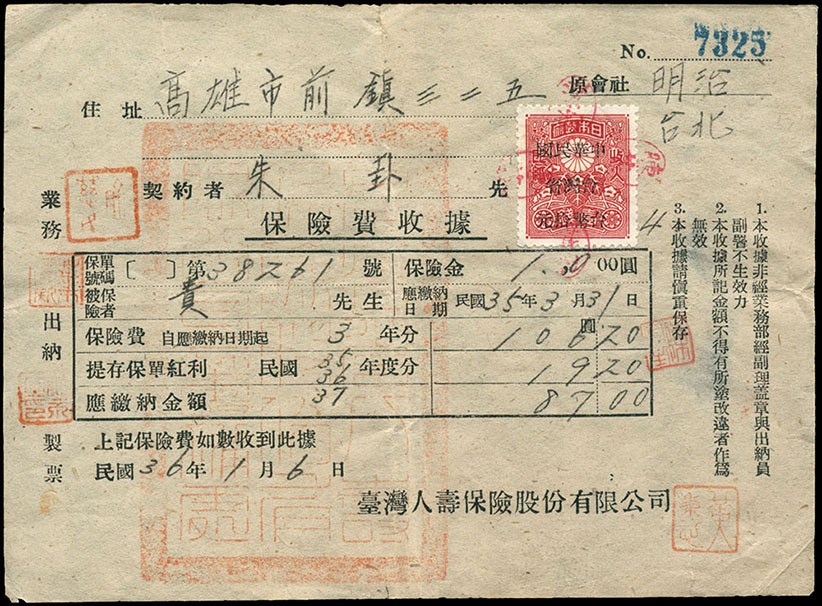 No. 7325
住址 高雄市前鎮三二五
原會社 明治
台北
契約者 朱卦 先
中華民國
台灣省
台幣拾元
保險費收據
4
保單號碼 [ ] 第38261號 保險金 1. 00圓
被保險者 貴 先生 應繳納日期 民國35年3月31日
保險費 自應繳納日期起 3 年分 圓 106 20
提存保單紅利 民國 35 36 37 年度分 19 20
應繳納金額 87 00
上記保險費如數收到此據
民國36年1月6日
臺灣人壽保險股份有限公司
業務
出納
製票
1. 本收據非經業務部經副理蓋章與出納員
副署不生效力
2. 本收據所記金額不得有所塗改違者作爲
無效
3. 本收據請愼重保存